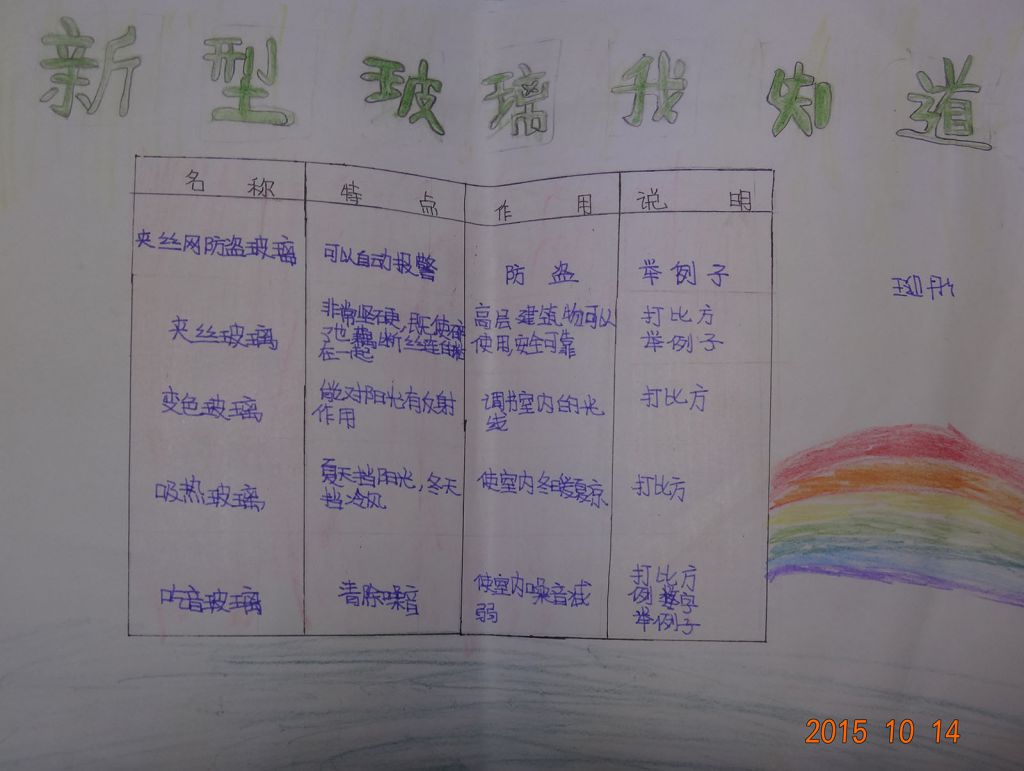 新型玻璃我知道
名称 特点 作用 说明
夹丝网防盗玻璃 可以自动报警 防盗 举例子
夹丝玻璃 非常坚硬,既使碎
了也藕断丝连自粘
在一起 高层建筑物可以
使用,安全可靠 打比方
举例子
变色玻璃 做对阳光有反射
作用 调书室内的光
线 打比方
吸热玻璃 夏天挡阳光,冬天
挡冷风 使室内冬暖夏凉 打比方
吃音玻璃 清除噪音 使室内噪音减
弱 打比方
举例子